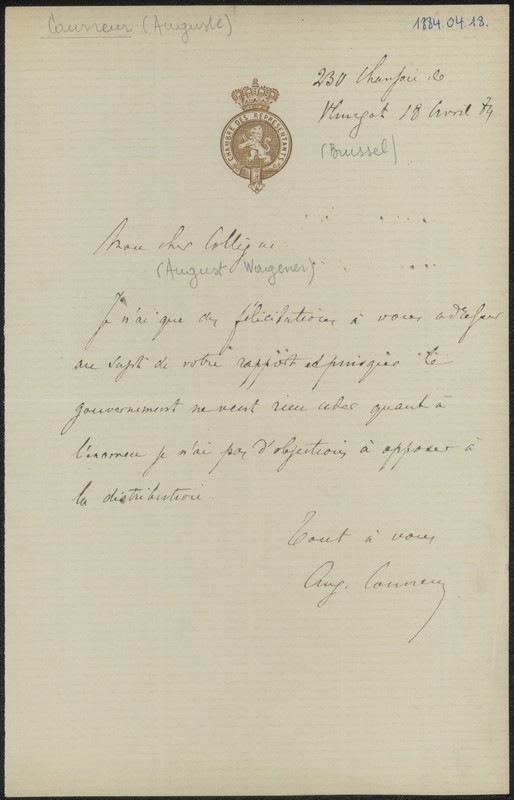 Couvreur (Auguste)
1884.04.18.
230 Chaussée de
Vleurgat 18 Avril 84
(Brussel)
CHAMBRE DES REPRÉSENTANTS
Mon cher Collègue
(August Wagener)
Je n'ai que des félicitations à vous adresser
au sujet de votre rapport et puisque le
gouvernement ne veut rien céder quant à
l'examen je n'ai pas d'objections à opposer à
la distribution.
Tout à vous
Aug. Couvreur